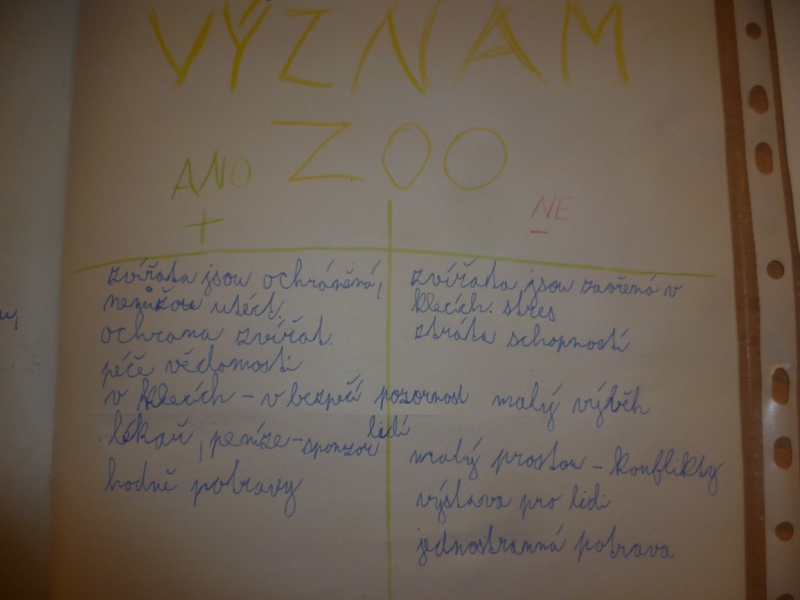 VÝZNAM
ZOO
ANO
+
zvířata jsou ochráněná,
nemůžou utéct.
ochrana zvířat.
péče vědomosti
v klecích - v bezpečí pozornost
lidí
lékař, peníze - sponzor
hodně potravy
NE
-
zvířata jsou zavřená v
klecích. stres
ztráta schopností
malý výběh
malý prostor - konflikty
výstava pro lidi
jednostranná potrava